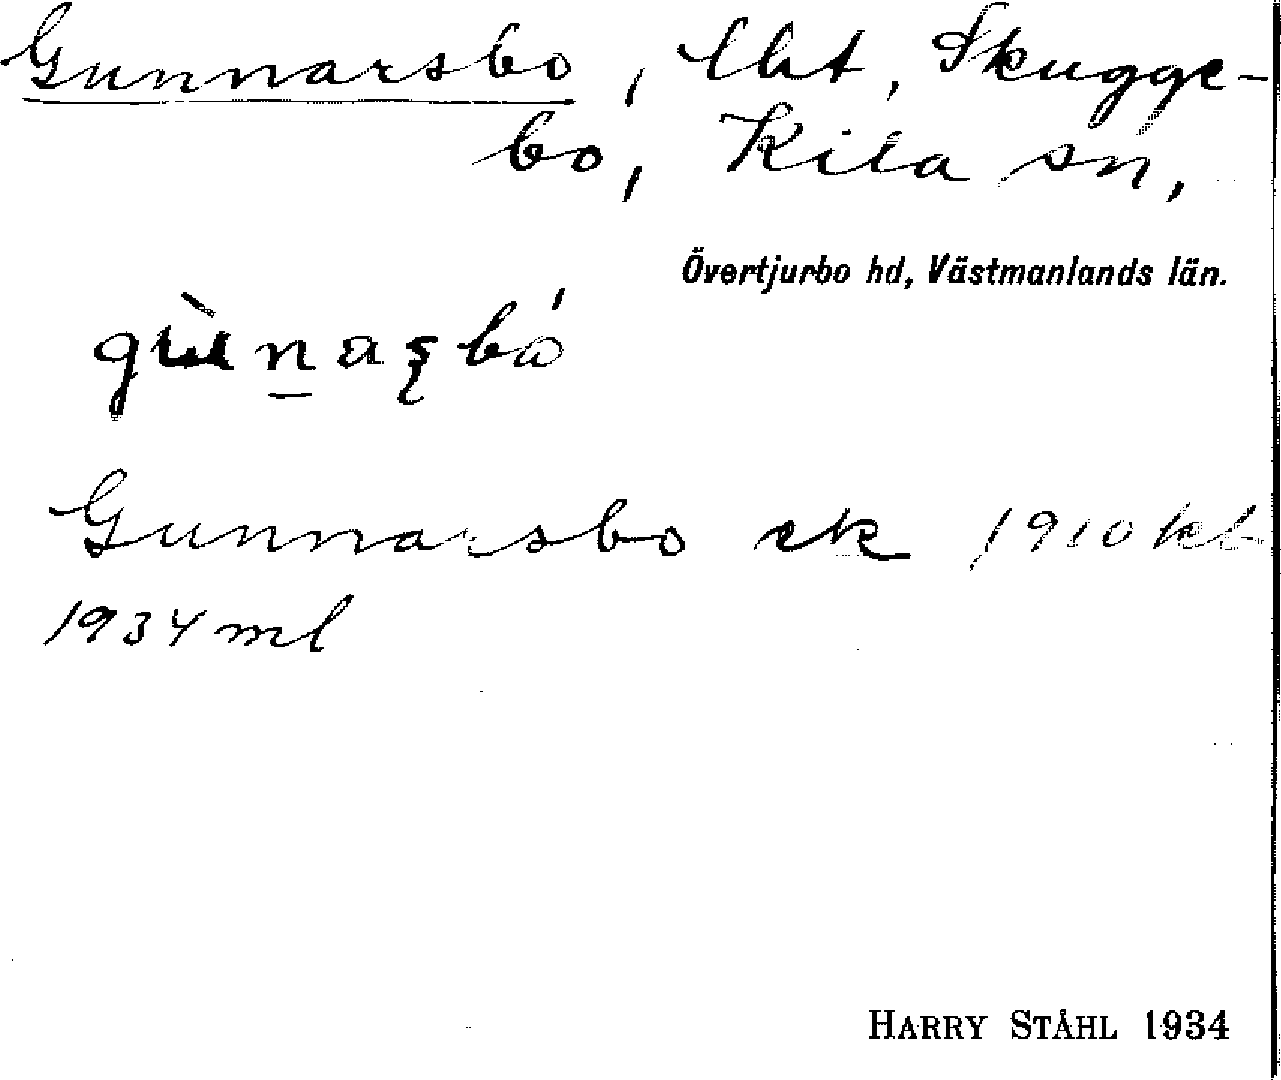 Gunnarsbo, lht, Skugge-
bo, Kila sn,
Övertjurbo hd, Västmanlands län.
Gunnarsbo ek 1910 kb
1934 ml
HARRY STÅHL 1934